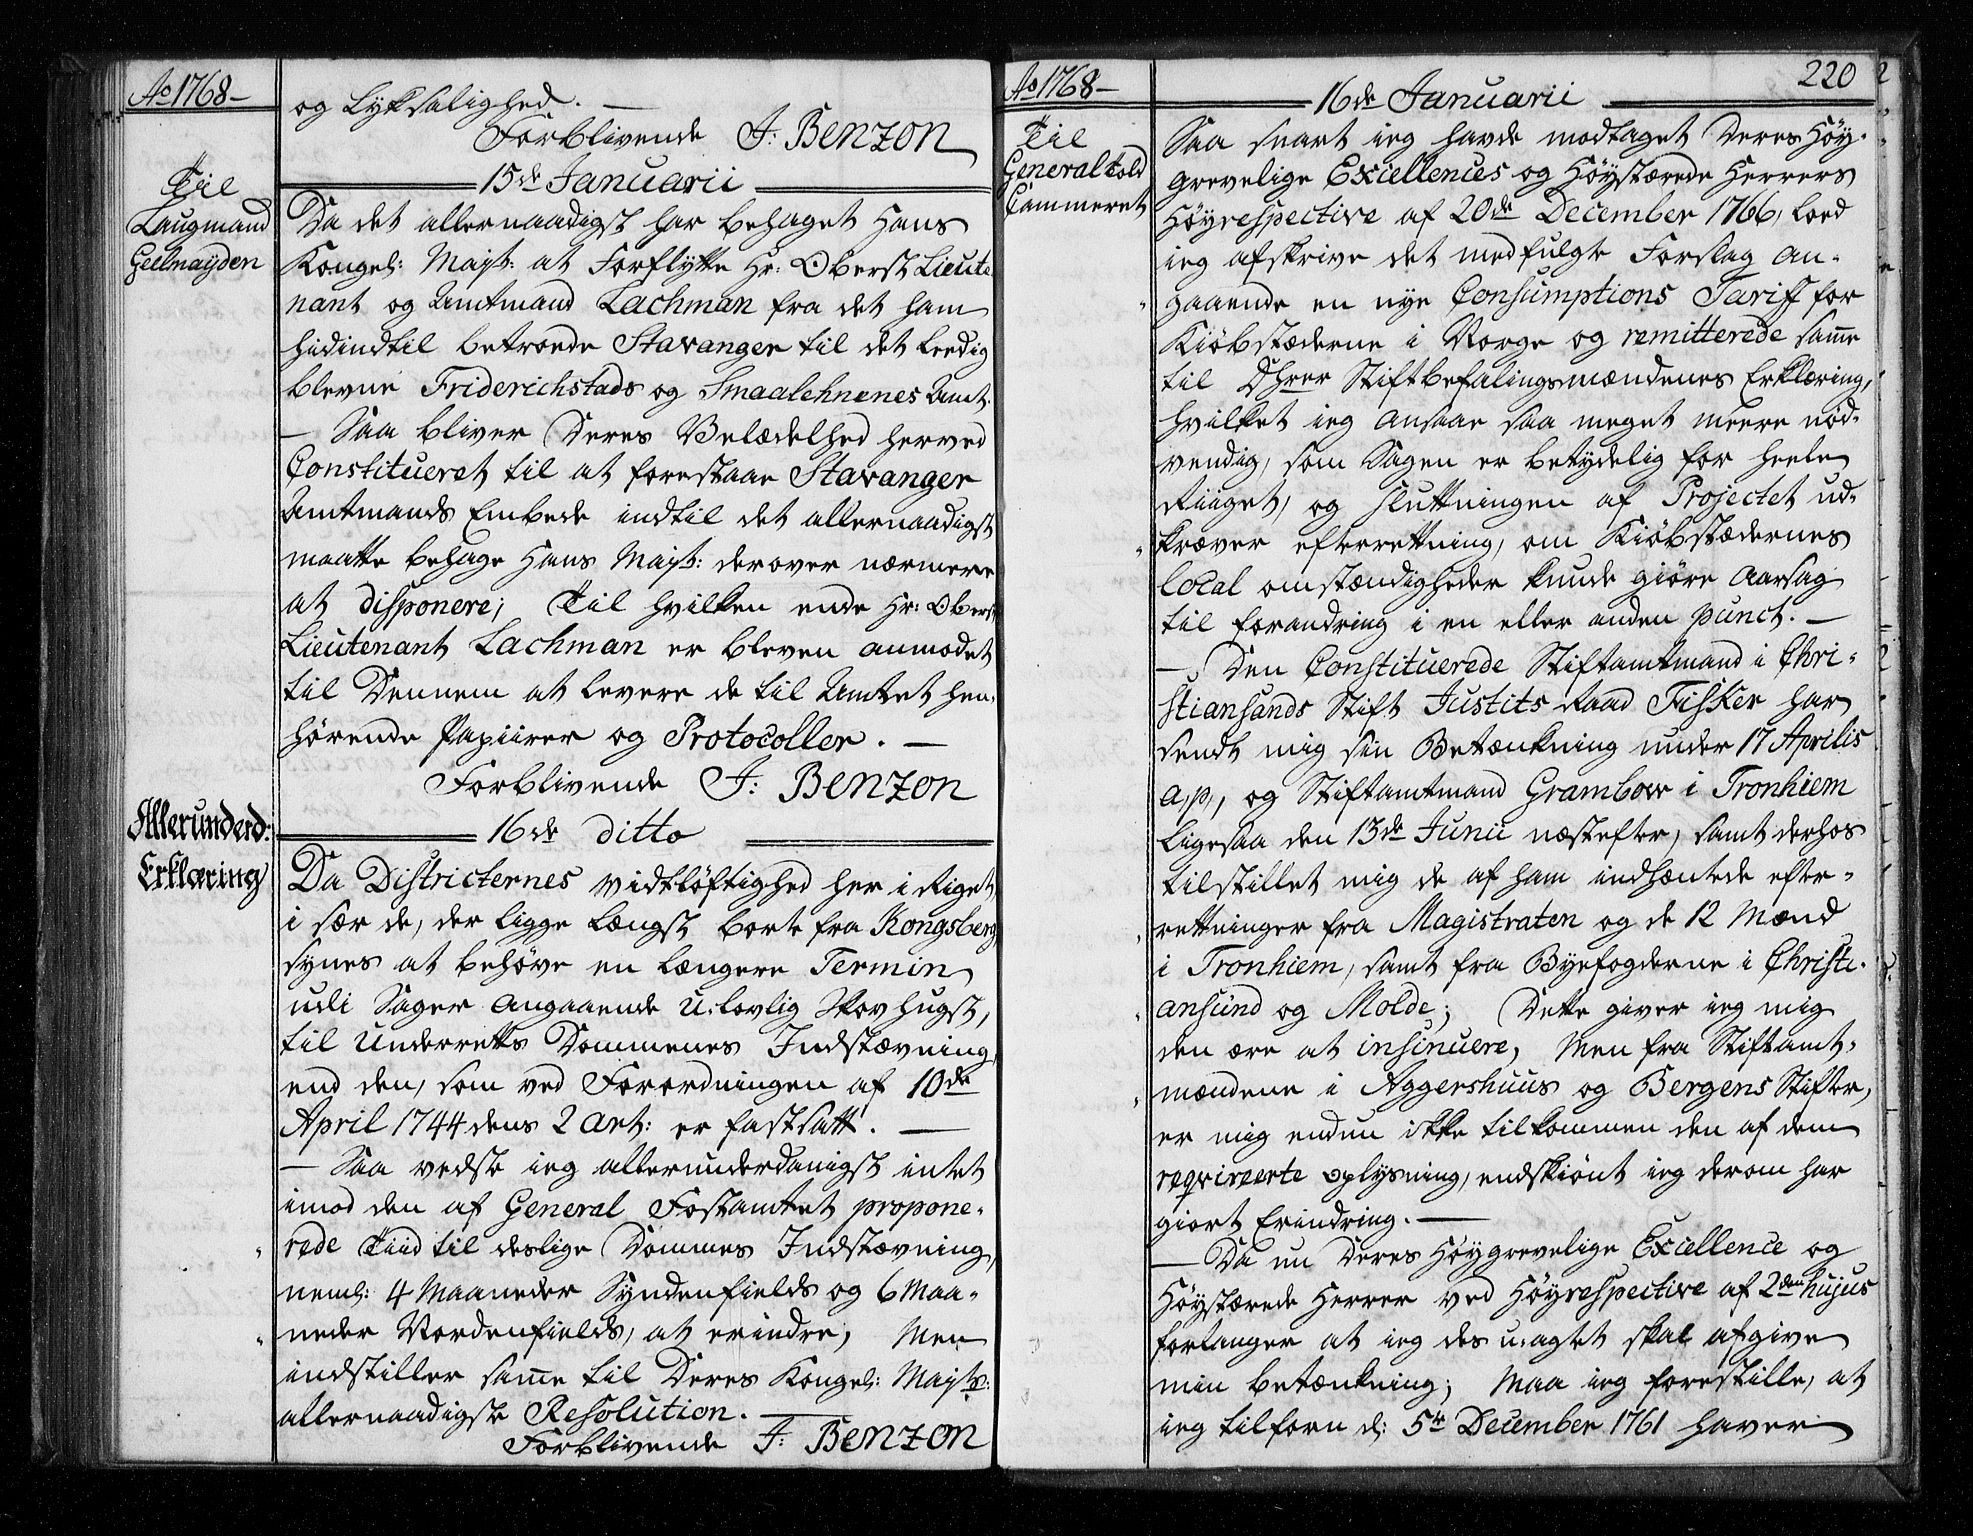 Ao 1768
og Lyksalighed. —
Forblivende J: Benzon
15de Januarii
Til
Laugmand
Geelmaÿden
Da det allernaadigst har behaget Hans
Kongel: Mayst: at Forflytte Hr: Oberst Lieute
nant og Amtmand Lachman fra det ham
hidindtil betroede Stavanger til det leedig
blevne Friderichstads og Smaalehnenes Amt.
— Saa bliver Deres Velædelhed herved
Constitueret til at forestaae Stavanger
Amtmands Embede indtil det allernaadigst
maatte behage Hans Mayst: derover nærmere
at disponere; Til hvilken ende Hr: Oberst
Lieutenant Lachman er bleven anmodet
til Dennem at levere de til Amtet hen-
hørende Papiirer og Protocoller. —
Forblivende J: Benzon
16de ditto
Allerunderd:
Erklæring
Da Districternes vidtløftighed her i Riget,
i sær de, der ligge længst borte fra Kongsberg,
synes at behøve en længere Termin
udi Sager angaaende u-lovlig Skov hugst,
til Underretts Dommenes Indstævning,
end den, som ved Forordningen af 10de
April 1744 dens 2 Art: er fastsatt. —
— Saa vedste ieg allerunderdanigst intet
imod den af General Forstamtet propone-
rede Tiid til deslige Dommes Indstævning,
neml: 4 Maaneder Syndenfields og 6 Maa-
neder Nordenfields, at erindre; Men
indstiller samme til Deres Kongel: Mayts:
allernaadigste Resolution. —
Forblivende J: Benzon
Ao 1768
220
16de Januarii
Til
General told
Cammeret
Saa snart ieg havde modtaget Deres Høy-
grevelige Excellences og Høystærede Herrers
Høyrespective af 20de December 1766, loed
ieg afskrive det medfulgte Forslag an-
gaaende en nye Consumptions Tariff for
Kiøbstæderne i Norge og remitterede samme
til Dhrer Stiftbefalingsmændenes Erklæring,
hvilket ieg ansaae saa meget meere nød-
vendig, som Sagen er betydelig for heele
Riiget, og Sluttningen af Projectet ud-
kræver efterrettning, om Kiøbstædernes
local omstændigheder kunde giøre Aarsag
til forandring i en eller anden punct. —
— Den Constituerede Stiftamtmand i Chri-
stiansands Stift Justits Raad Fisker har
sendt mig sin Betænkning under 17 Aprilis
a, p,, og Stiftamtmand Grambow i Tronhiem
ligesaa den 13de Junii næstefter, samt derhos
tilstillet mig de af ham indhæntede efter-
rettninger fra Magistraten og de 12 Mænd
i Tronhiem, samt fra Byefogderne i Christi-
ansund og Molde; Dette giver ieg mig
den ære at insinuere, Men fra Stiftamt-
mændene i Aggershuus og Bergens Stifter,
er mig endnu ikke tilkommen den af dem
reqvireerte oplysning, endskiønt ieg derom har
giort Erindring. —
— Da nu Deres Høygrevelige Excellence og
Høystærede Herrer ved Høyrespective af 2den hujus
forlanger at ieg des u-agtet skal afgive
min betænkning; Maa ieg forestille, at
ieg tilforn d: 5te December 1761 haver